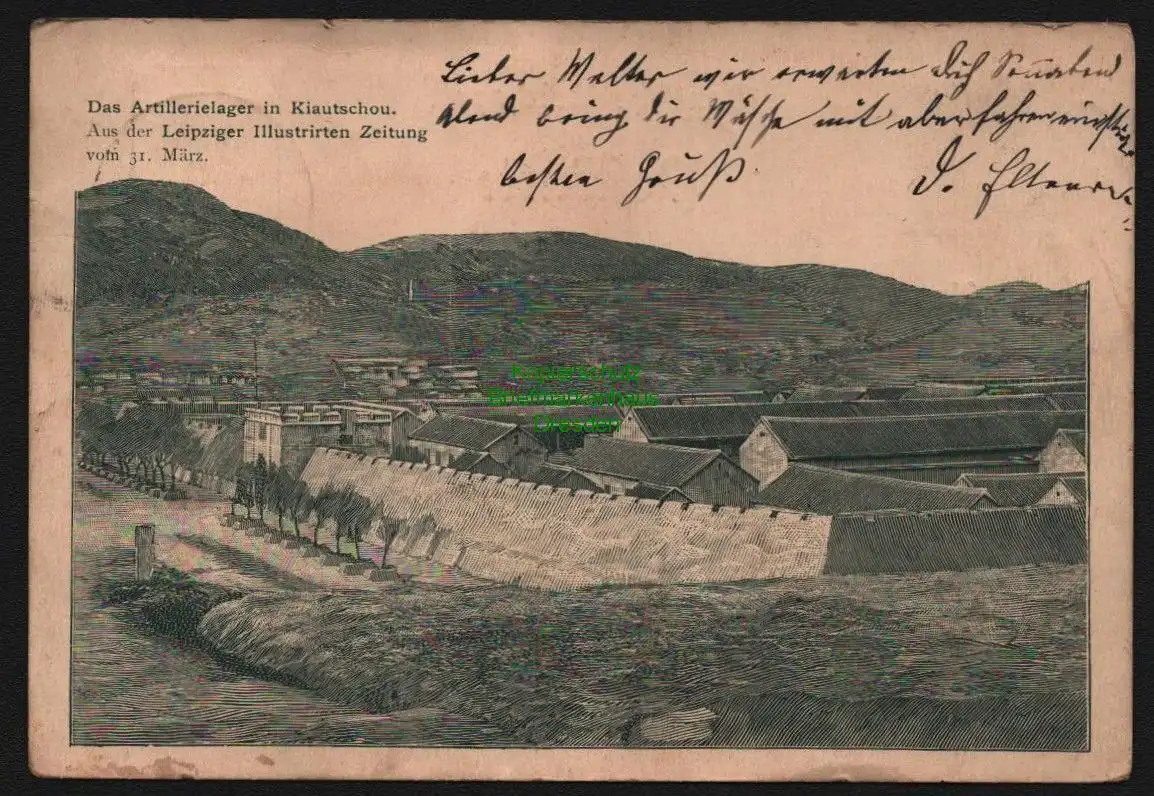 Das Artillerielager in Kiautschou.
Aus der Leipziger Illustrirten Zeitung
vom 31. März.
Lieber Walter wir erwarten dich Sonnabend
Abend bring die Wäsche mit aber fahre
besten Gruß D. Eltern
Kopierschutz
Briefmarkenhaus
Dresden